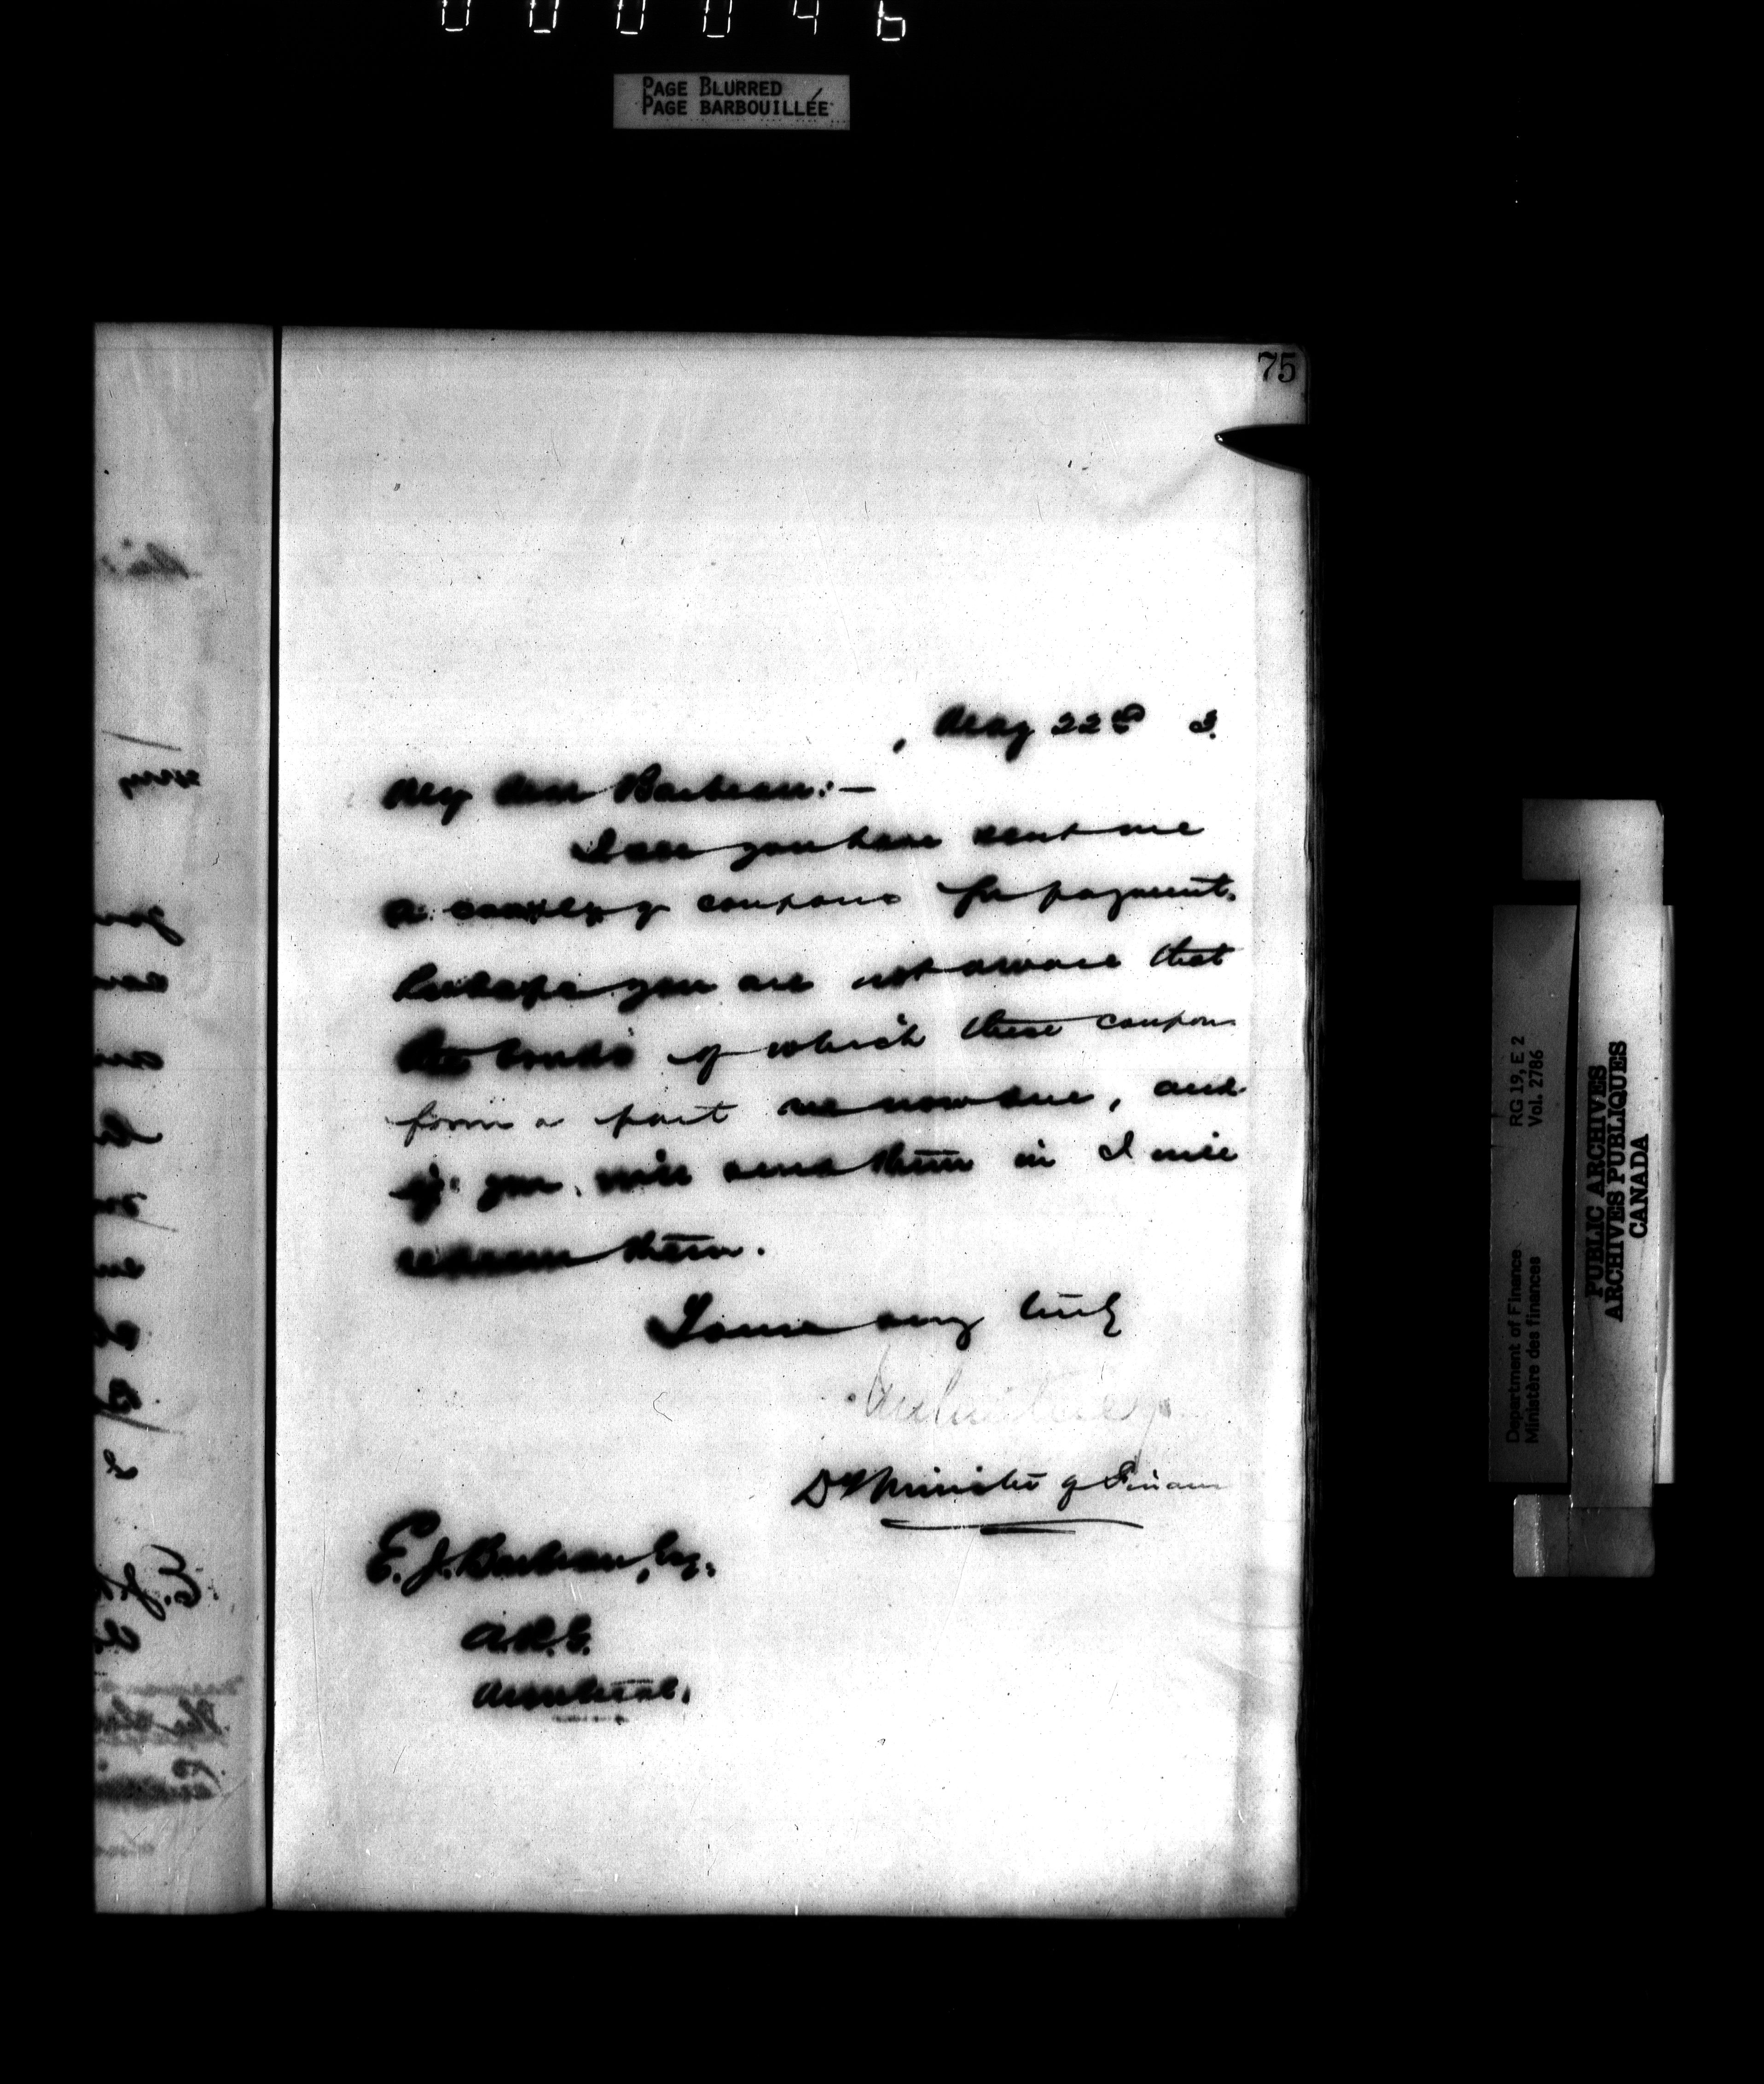 000046
PAGE BLURRED
PAGE BARBOUILLÉE
75
May 22nd 3.
My dear Barbeau:—
I see you have sent me
a couple of coupons for payment.
Perhaps you are not aware that
the bonds of which these coupons
form a part are now due, and
if you will send them in I will
redeem them.
Yours very truly
Dy Minister of Finance
E. J. Barbeau, Esq.
Montreal.
Department of Finance
Ministère des finances
RG 19, E 2
Vol. 2786
PUBLIC ARCHIVES
ARCHIVES PUBLIQUES
CANADA